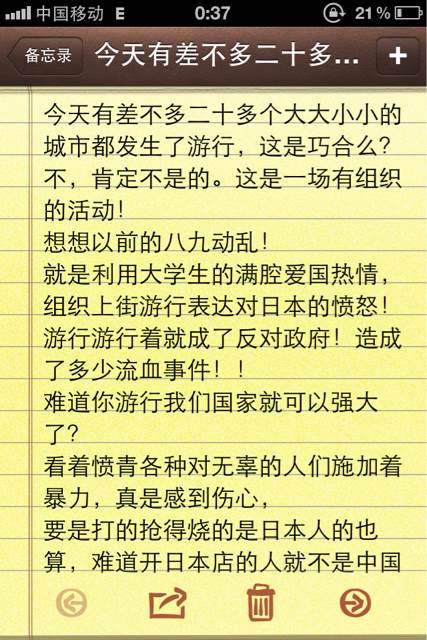 中国移动 E 0:37 21%
备忘录 今天有差不多二十多... +
今天有差不多二十多个大大小小的
城市都发生了游行，这是巧合么？
不，肯定不是的。这是一场有组织
的活动！
想想以前的八九动乱！
就是利用大学生的满腔爱国热情，
组织上街游行表达对日本的愤怒！
游行游行着就成了反对政府！造成
了多少流血事件！！
难道你游行我们国家就可以强大
了？
看着愤青各种对无辜的人们施加着
暴力，真是感到伤心，
要是打的抢得烧的是日本人的也
算，难道开日本店的人就不是中国